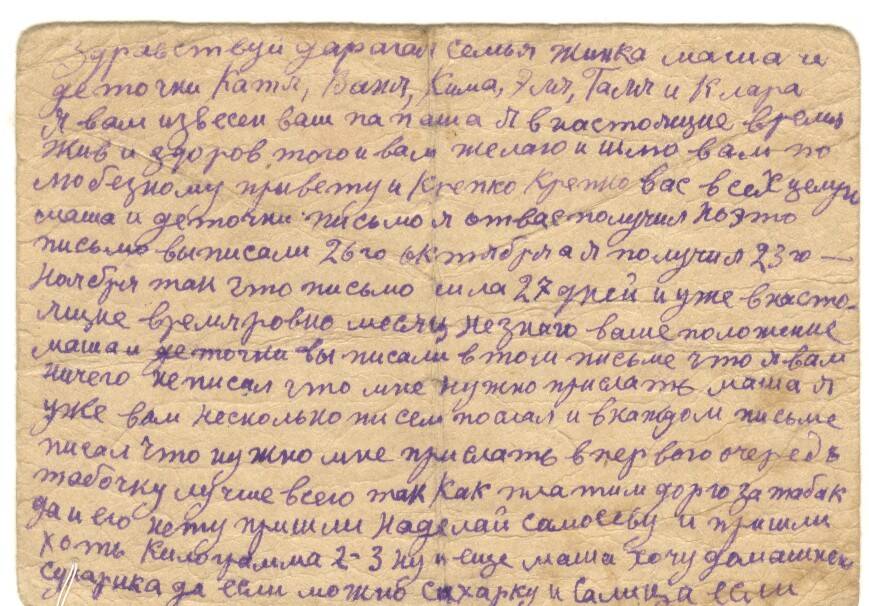 Здравствуй дарагая семья жинка маша и
деточки Катя, Ваня, Кима, Эля, Галя и Клара
Я вам извесен ваш папаша я внастоящие время
жив и здоров того и вам желаю и шлю вам по
любезному привету и Крепко Крепко вас всех целую
маша и деточки письмо я отвас получил Но это
письмо выписали 26го октября а я получил 23го —
Ноября так что письмо шла 27 дней и уже внасто-
ящие время ровно месяц незнаю ваше положение
маша и деточки вы писали втом письме что я вам
ничего неписал что мне нужно прислать маша я
уже вам несколько писем послал и вкаждом письме
писал что нужно мне прислать впервого очередь
табочку лучше всего так как платим дорго за табак
да и его нету пришли наделай самосеву и пришли
хоть Килограмма 2-3 ну и еще маша хочу домашнего
сухарика да если можно сахарку и Сальца если